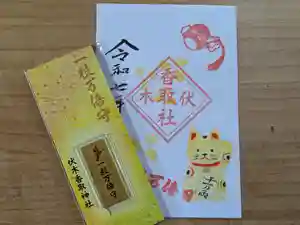 一粒万倍守
一粒万倍守
伏木香取神社
令和七年
香取社
伏木